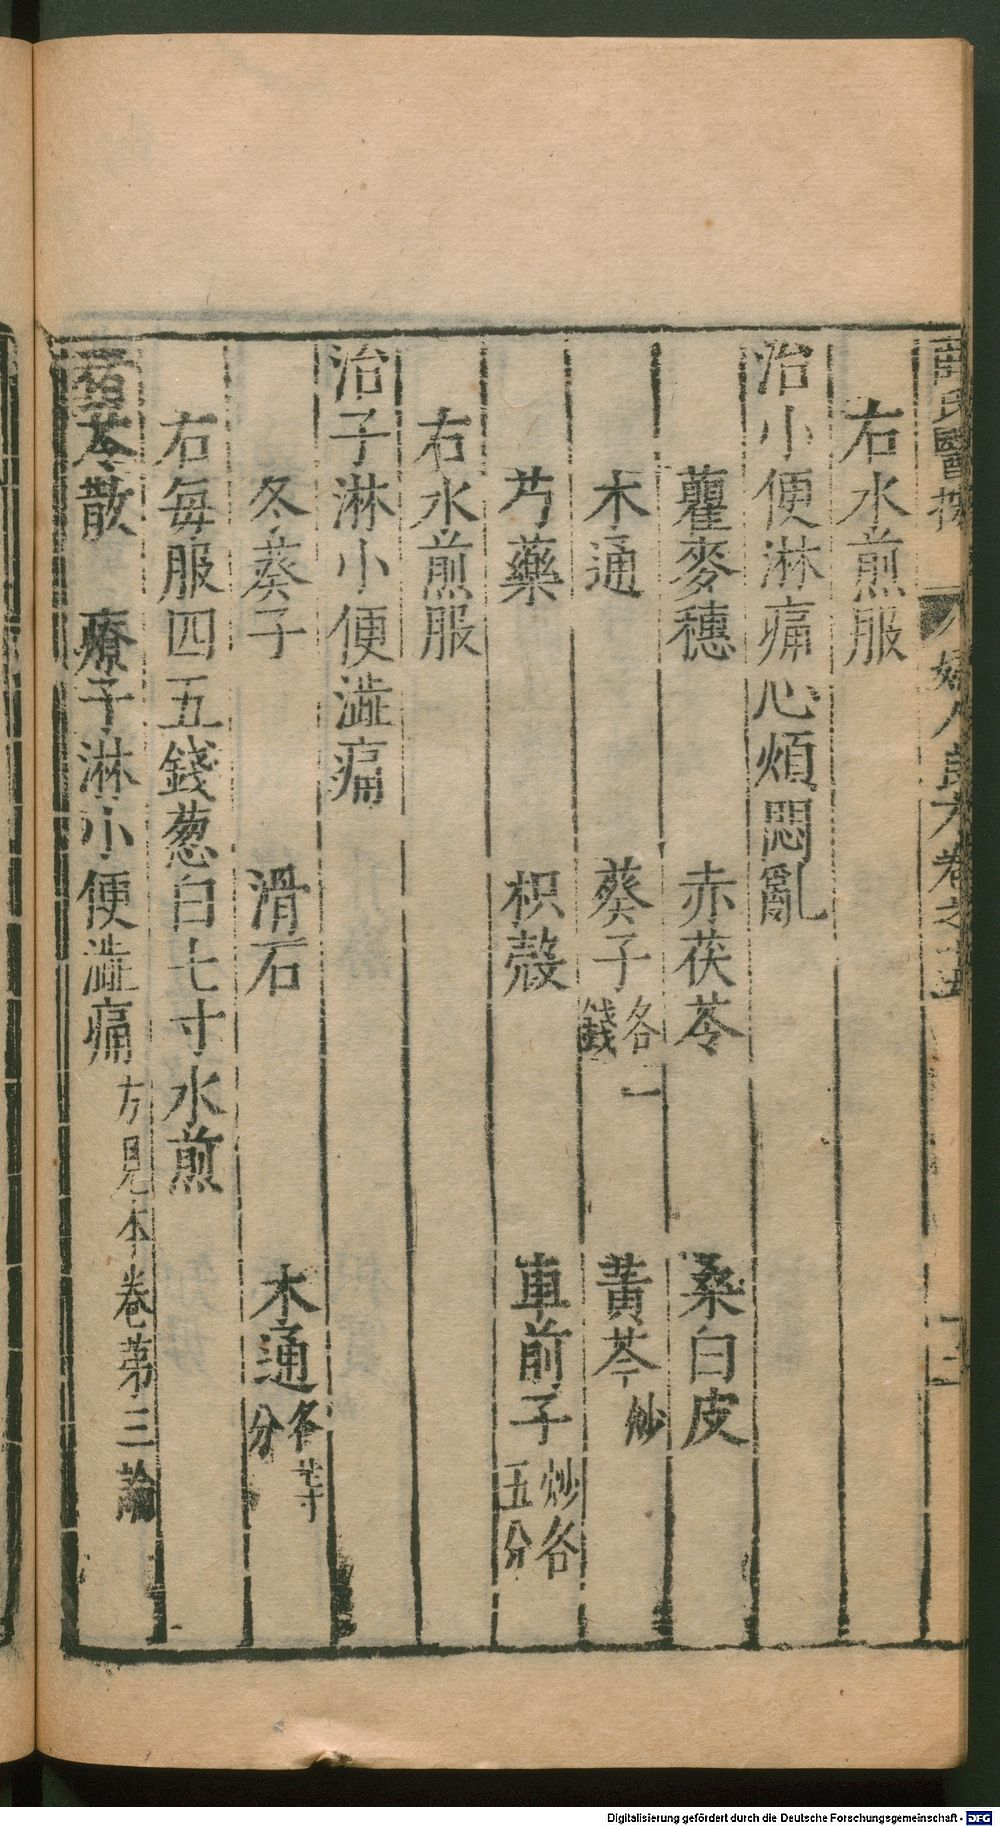 薛氏醫按 婦人良方卷之十五 十二
右水煎服
治小便淋痛心煩悶亂
藿麥穗 赤茯苓 桑白皮
木通 葵子各一錢 黃芩炒
芍藥 枳殼 車前子炒各五分
右水煎服
治子淋小便澁痛
冬葵子 滑石 木通各等分
右每服四五錢葱白七寸水煎
苓散 療子淋小便澁痛方見本卷第三論
Digitalisierung gefördert durch die Deutsche Forschungsgemeinschaft - DFG